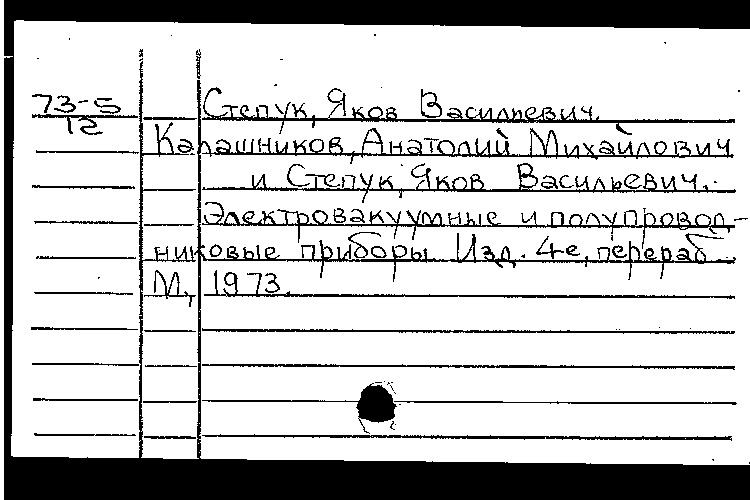 73-5 Степук, Яков Васильевич.
12
Калашников, Анатолий Михайлович
и Степук, Яков Васильевич.
Электровакуумные и полупровод-
никовые приборы. Изд. 4-е, перераб.
М., 1973.